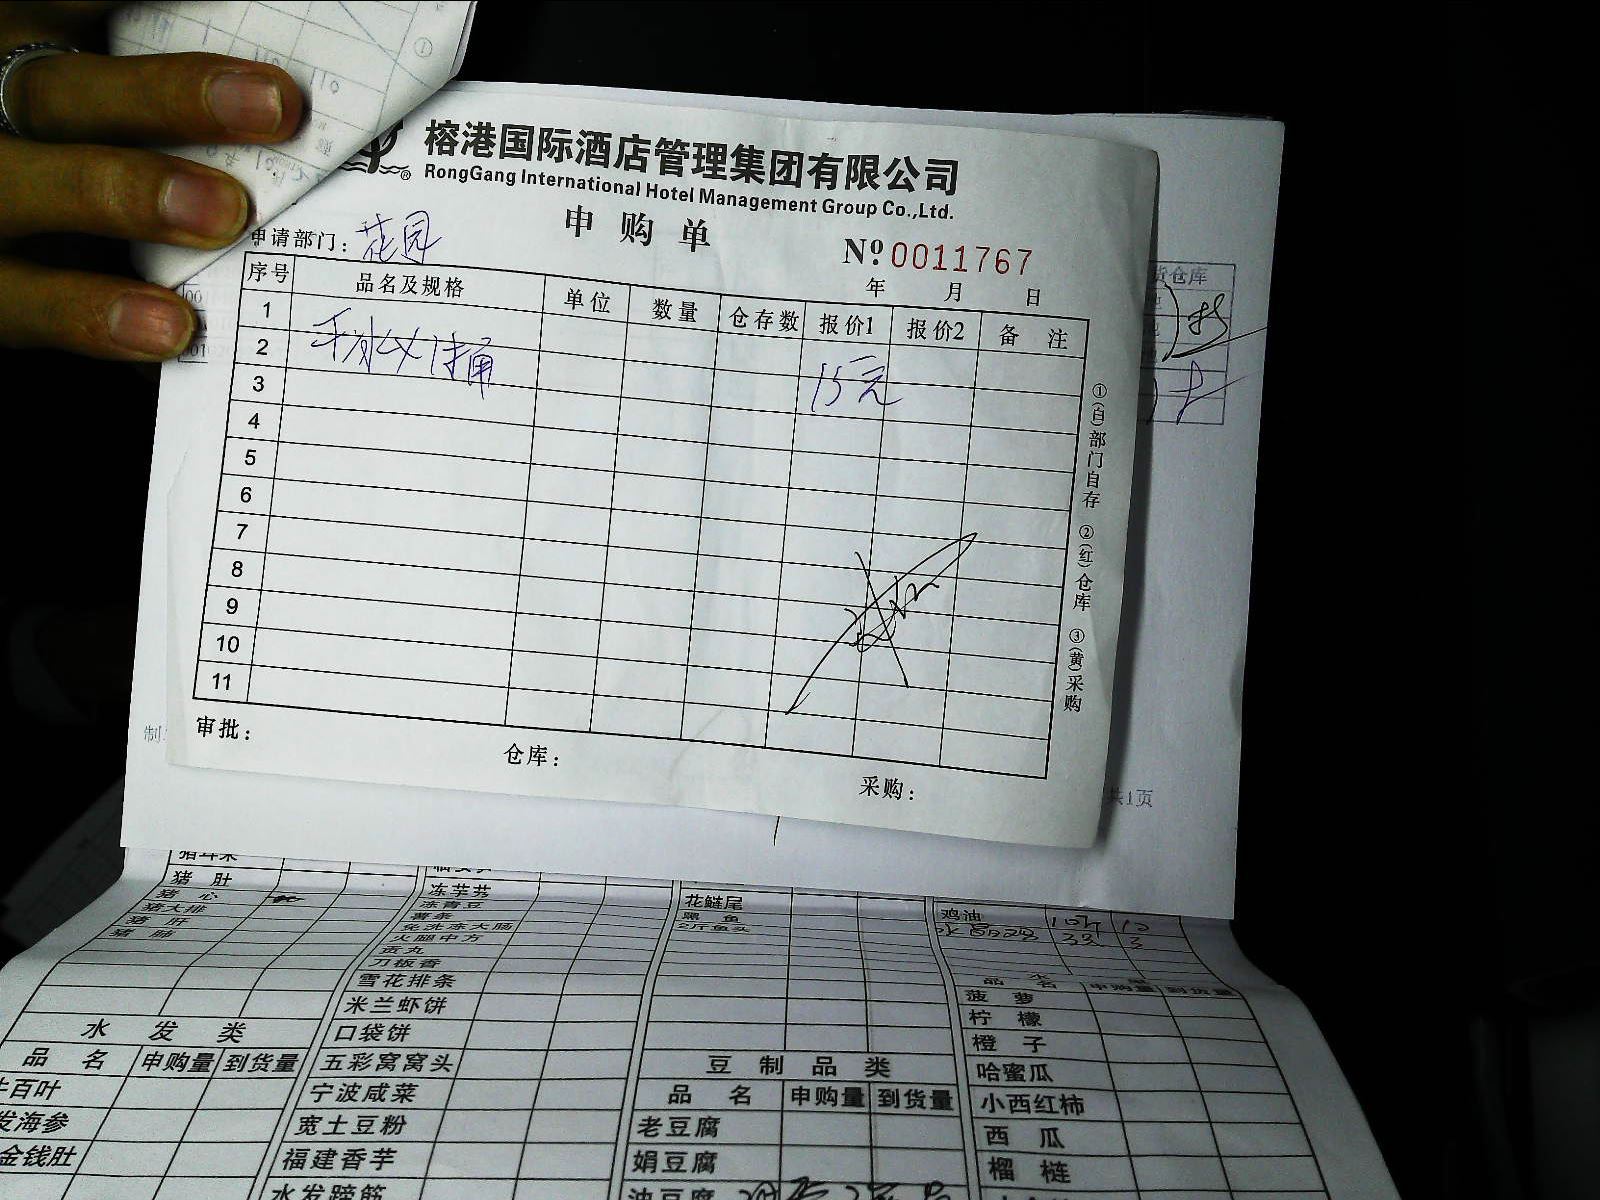 榕港国际酒店管理集团有限公司
RongGang International Hotel Management Group Co.,Ltd.
申购单
申请部门：花园
№ 0011767
年 月 日
序号 品名及规格 单位 数量 仓存数 报价1 报价2 备 注
1
2 15元
3
4
5
6
7
8
9
10
11
审批：
仓库：
采购：
①(白)部门自存 ②(红)仓库 ③(黄)采购
货仓库
共1页
猪肚
猪心
猪大排
猪肝
水发类
品名 申购量 到货量
牛百叶
发海参
金钱肚
冻芋艿
冻青豆
薯条
免洗冻大肠
火腿中方
贡丸
刀板香
雪花排条
米兰虾饼
口袋饼
五彩窝窝头
宁波咸菜
宽土豆粉
福建香芋
水发蹄筋
花鲢尾
黑鱼
2斤鱼头
豆制品类
品名 申购量 到货量
老豆腐
娟豆腐
油豆腐
鸡油
品名 申购量 到货量
菠萝
柠檬
橙子
哈蜜瓜
小西红柿
西瓜
榴梿